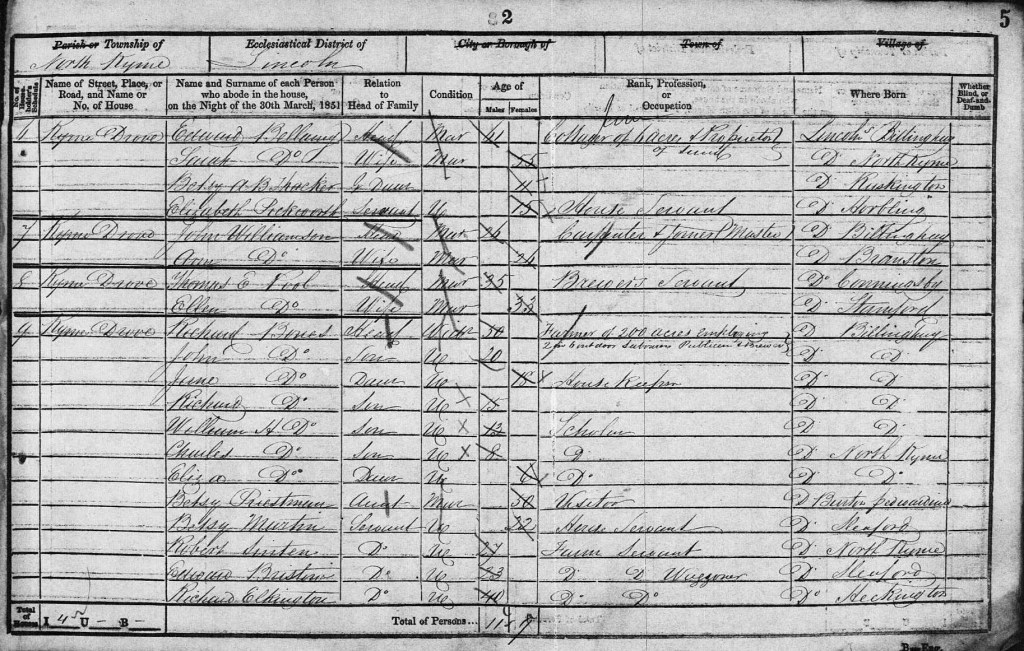 2 5
Parish or Township of Ecclesiastical District of City or Borough of Town of Village of
North Kyme Lincoln
Name of Street, Place, or Road, and Name or No. of House
Name and Surname of each Person who abode in the house, on the Night of the 30th March, 1851
Relation to Head of Family
Condition
Age of Males Females
Rank, Profession, or Occupation
Where Born
Whether Blind, or Deaf-and-Dumb
6 Kyme Drove Edward Head Mar 41 Cottager of acres & Lincoln Billinghay
Sarah Do Wife Mar Do North Kyme
Betsy A B Thacker G Daur 11 Do Ruskington
Elizabeth Peckworth Servant U 15 House Servant Do Horbling
7 Kyme Drove John Williamson Head Mar 26 Carpenter & Joiner Master Do Billinghay
Ann Do Wife Mar 24 Do Branston
8 Kyme Drove Thomas E Pool Head Mar 35 Brewers Servant Do Conningsby
Ellen Do Wife Mar 33 Do Stamford
9 Kyme Drove Richard Bones Head Widr Farmer of 200 acres employing Do Billinghay
2 outdoor Labourers Publican & Brewer
John Do Son U 20 Do Do
June Do Daur U 18 House Keeper Do Do
Richard Do Son U 15 Do Do
William H Do Son U 13 Scholar Do Do
Charles Do Son U 8 Do Do North Kyme
Eliza Do Daur U 6 Do Do Do
Betsy Priestman Aunt Mar 50 Visitor Do Burton Pedwardine
Betsy Martin Servant U 22 House Servant Do Sleaford
Robert Do U 27 Farm Servant Do North Kyme
Edward Bristow Do U 23 Do Do Waggoner Do Sleaford
Richard Elkington Do U 40 Do Do Do Heckington
Total of Houses I 4 U - B - Total of Persons... 11 9